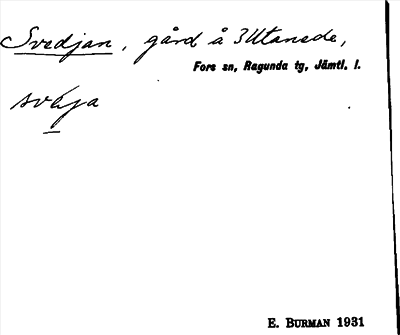 Svedjan, gård å 3 Utanede,
Fors sn, Ragunda tg, Jämtl. l.
E. BURMAN 1931